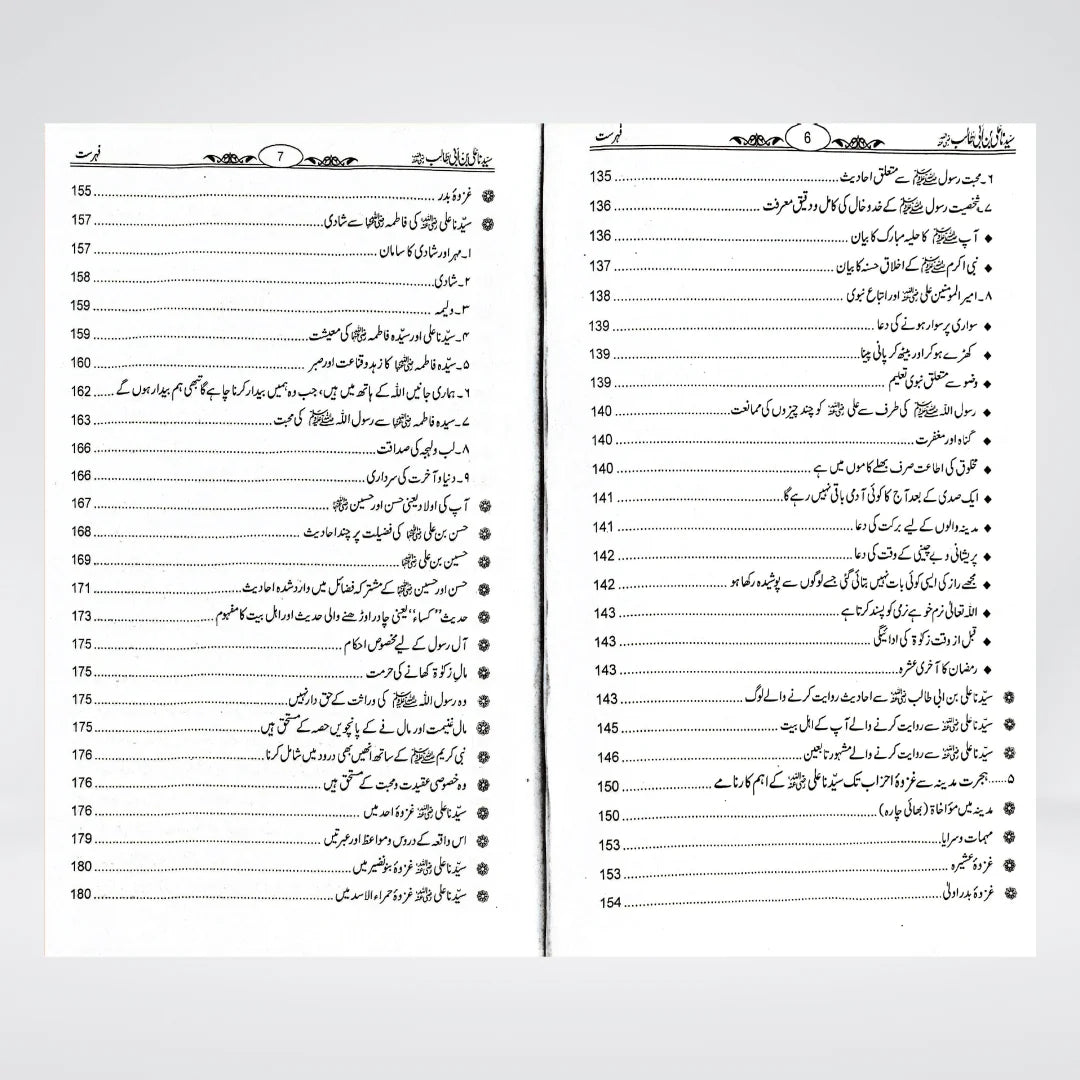 سیّدنا علی بن ابی طالب رضی اللہ عنہ 6 فہرست
۶۔محبت رسول ﷺ سے متعلق احادیث 135
۷۔شخصیت رسول ﷺ کے خدوخال کی کامل و دقیق معرفت 136
♦ آپ ﷺ کا حلیہ مبارک کا بیان 136
♦ نبی اکرم ﷺ کے اخلاق حسنہ کا بیان 137
۸۔امیر المومنین علی رضی اللہ عنہ اور اتباع نبوی 138
♦ سواری پر سوار ہونے کی دعا 139
♦ کھڑے ہو کر اور بیٹھ کر پانی پینا 139
♦ وضو سے متعلق نبوی تعلیم 139
♦ رسول اللہ ﷺ کی طرف سے علی رضی اللہ عنہ کو چند چیزوں کی ممانعت 140
♦ گناہ اور مغفرت 140
♦ مخلوق کی اطاعت صرف بھلے کاموں میں ہے 140
♦ ایک صدی کے بعد آج کا کوئی آدمی باقی نہیں رہے گا 141
♦ مدینہ والوں کے لیے برکت کی دعا 141
♦ پریشانی و بے چینی کے وقت کی دعا 142
♦ مجھے راز کی ایسی کوئی بات نہیں بتائی گئی جسے لوگوں سے پوشیدہ رکھا ہو 142
♦ اللہ تعالیٰ نرم خو ہے نرمی کو پسند کرتا ہے 143
♦ قبل از وقت زکوۃ کی ادائیگی 143
♦ رمضان کا آخری عشرہ 143
❁ سیّدنا علی بن ابی طالب رضی اللہ عنہ سے احادیث روایت کرنے والے لوگ 143
❁ سیّدنا علی رضی اللہ عنہ سے روایت کرنے والے آپ کے اہل بیت 145
❁ سیّدنا علی رضی اللہ عنہ سے روایت کرنے والے مشہور تابعین 146
۵..... ہجرت مدینہ سے غزوۂ احزاب تک سیّدنا علی رضی اللہ عنہ کے اہم کارنامے 150
❁ مدینہ میں مؤاخاۃ (بھائی چارہ) 150
❁ مہمات و سرایا 153
❁ غزوۂ عشیرہ 153
❁ غزوۂ بدر اولیٰ 154
سیّدنا علی بن ابی طالب رضی اللہ عنہ 7 فہرست
❁ غزوۂ بدر 155
❁ سیّدنا علی رضی اللہ عنہ کی فاطمہ رضی اللہ عنہا سے شادی 157
۱۔مہر اور شادی کا سامان 157
۲۔شادی 158
۳۔ولیمہ 159
۴۔سیّدنا علی اور سیّدہ فاطمہ رضی اللہ عنہما کی معیشت 159
۵۔سیّدہ فاطمہ رضی اللہ عنہا کا زہد و قناعت اور صبر 160
۶۔ہماری جانیں اللہ کے ہاتھ میں ہیں، جب وہ ہمیں بیدار کرنا چاہے گا تبھی ہم بیدار ہوں گے 162
۷۔سیدہ فاطمہ رضی اللہ عنہا سے رسول اللہ ﷺ کی محبت 163
۸۔لب و لہجہ کی صداقت 166
۹۔دنیا و آخرت کی سرداری 166
❁ آپ کی اولاد یعنی حسن اور حسین رضی اللہ عنہما 167
❁ حسن بن علی رضی اللہ عنہما کی فضیلت پر چند احادیث 168
❁ حسین بن علی رضی اللہ عنہما 169
❁ حسن اور حسین رضی اللہ عنہما کے مشترکہ فضائل میں وارد شدہ احادیث 171
❁ حدیث ”کساء“ یعنی چادر اوڑھنے والی حدیث اور اہل بیت کا مفہوم 173
❁ آل رسول کے لیے مخصوص احکام 175
❁ مالِ زکوٰۃ کھانے کی حرمت 175
❁ وہ رسول اللہ ﷺ کی وراثت کے حق دار نہیں 175
❁ مال غنیمت اور مال فے کے پانچویں حصہ کے مستحق ہیں 175
❁ نبی کریم ﷺ کے ساتھ انھیں بھی درود میں شامل کرنا 176
❁ وہ خصوصی عقیدت و محبت کے مستحق ہیں 176
❁ سیّدنا علی رضی اللہ عنہ غزوۂ احد میں 176
❁ اس واقعہ کے دروس و مواعظ اور عبرتیں 179
❁ سیّدنا علی رضی اللہ عنہ غزوۂ بنونضیر میں 180
❁ سیّدنا علی رضی اللہ عنہ غزوۂ حمراء الاسد میں 180